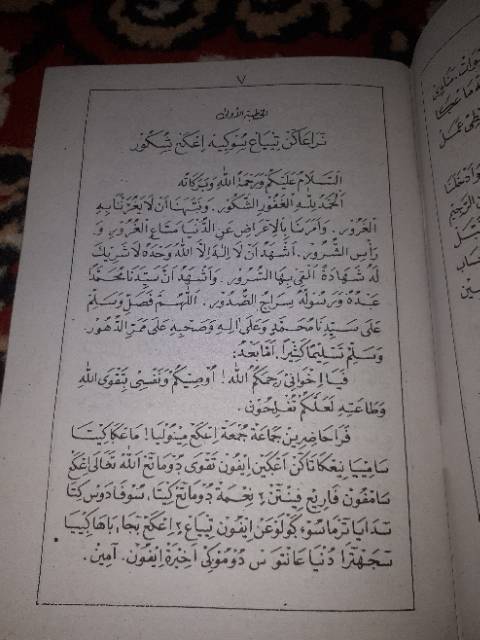 ٧
الخطبة الأولى
نراعاكن تيياڠ سوڮيه إڠكڠ شكور
السلام عليكم ورحمة الله وبركاته
الحمد لله الغفور الشكور. ونبهنا أن لا يغرنا به
الغرور. وأمرنا بالإعراض عن الدنيا متاع الغرور. و
رأس الشرور. أشهد أن لا إله إلا الله وحده لا شريك
له شهادة ألقى بها السرور. وأشهد أن سيدنا محمدا
عبده ورسوله سراج الصدور. اللهم فصل وسلم
على سيدنا محمد وعلى اله وصحبه على مر الدهور.
وسلم تسليما كثيرا. أما بعد:
فيا إخواني رحمكم الله! أوصيكم ونفسي بتقوى الله
وطاعته لعلكم تفلحون.
فرا حاضرين جماعة جمعة إڠكڠ مينوليا! ماڠڮا كيتا
سامييا نيڠكاتاكن اڠڮين ايڤون تقوى دوماتڠ الله تعالى إڠكڠ
سامڤون ڤاريڠ ڤينتن٢ نعمة دوماتڠ كيتا، سوڤادوس كتا
تيياڠ٢ إڠكڠ
دنيا دوموڮي آخرة ايڤون. آمين.